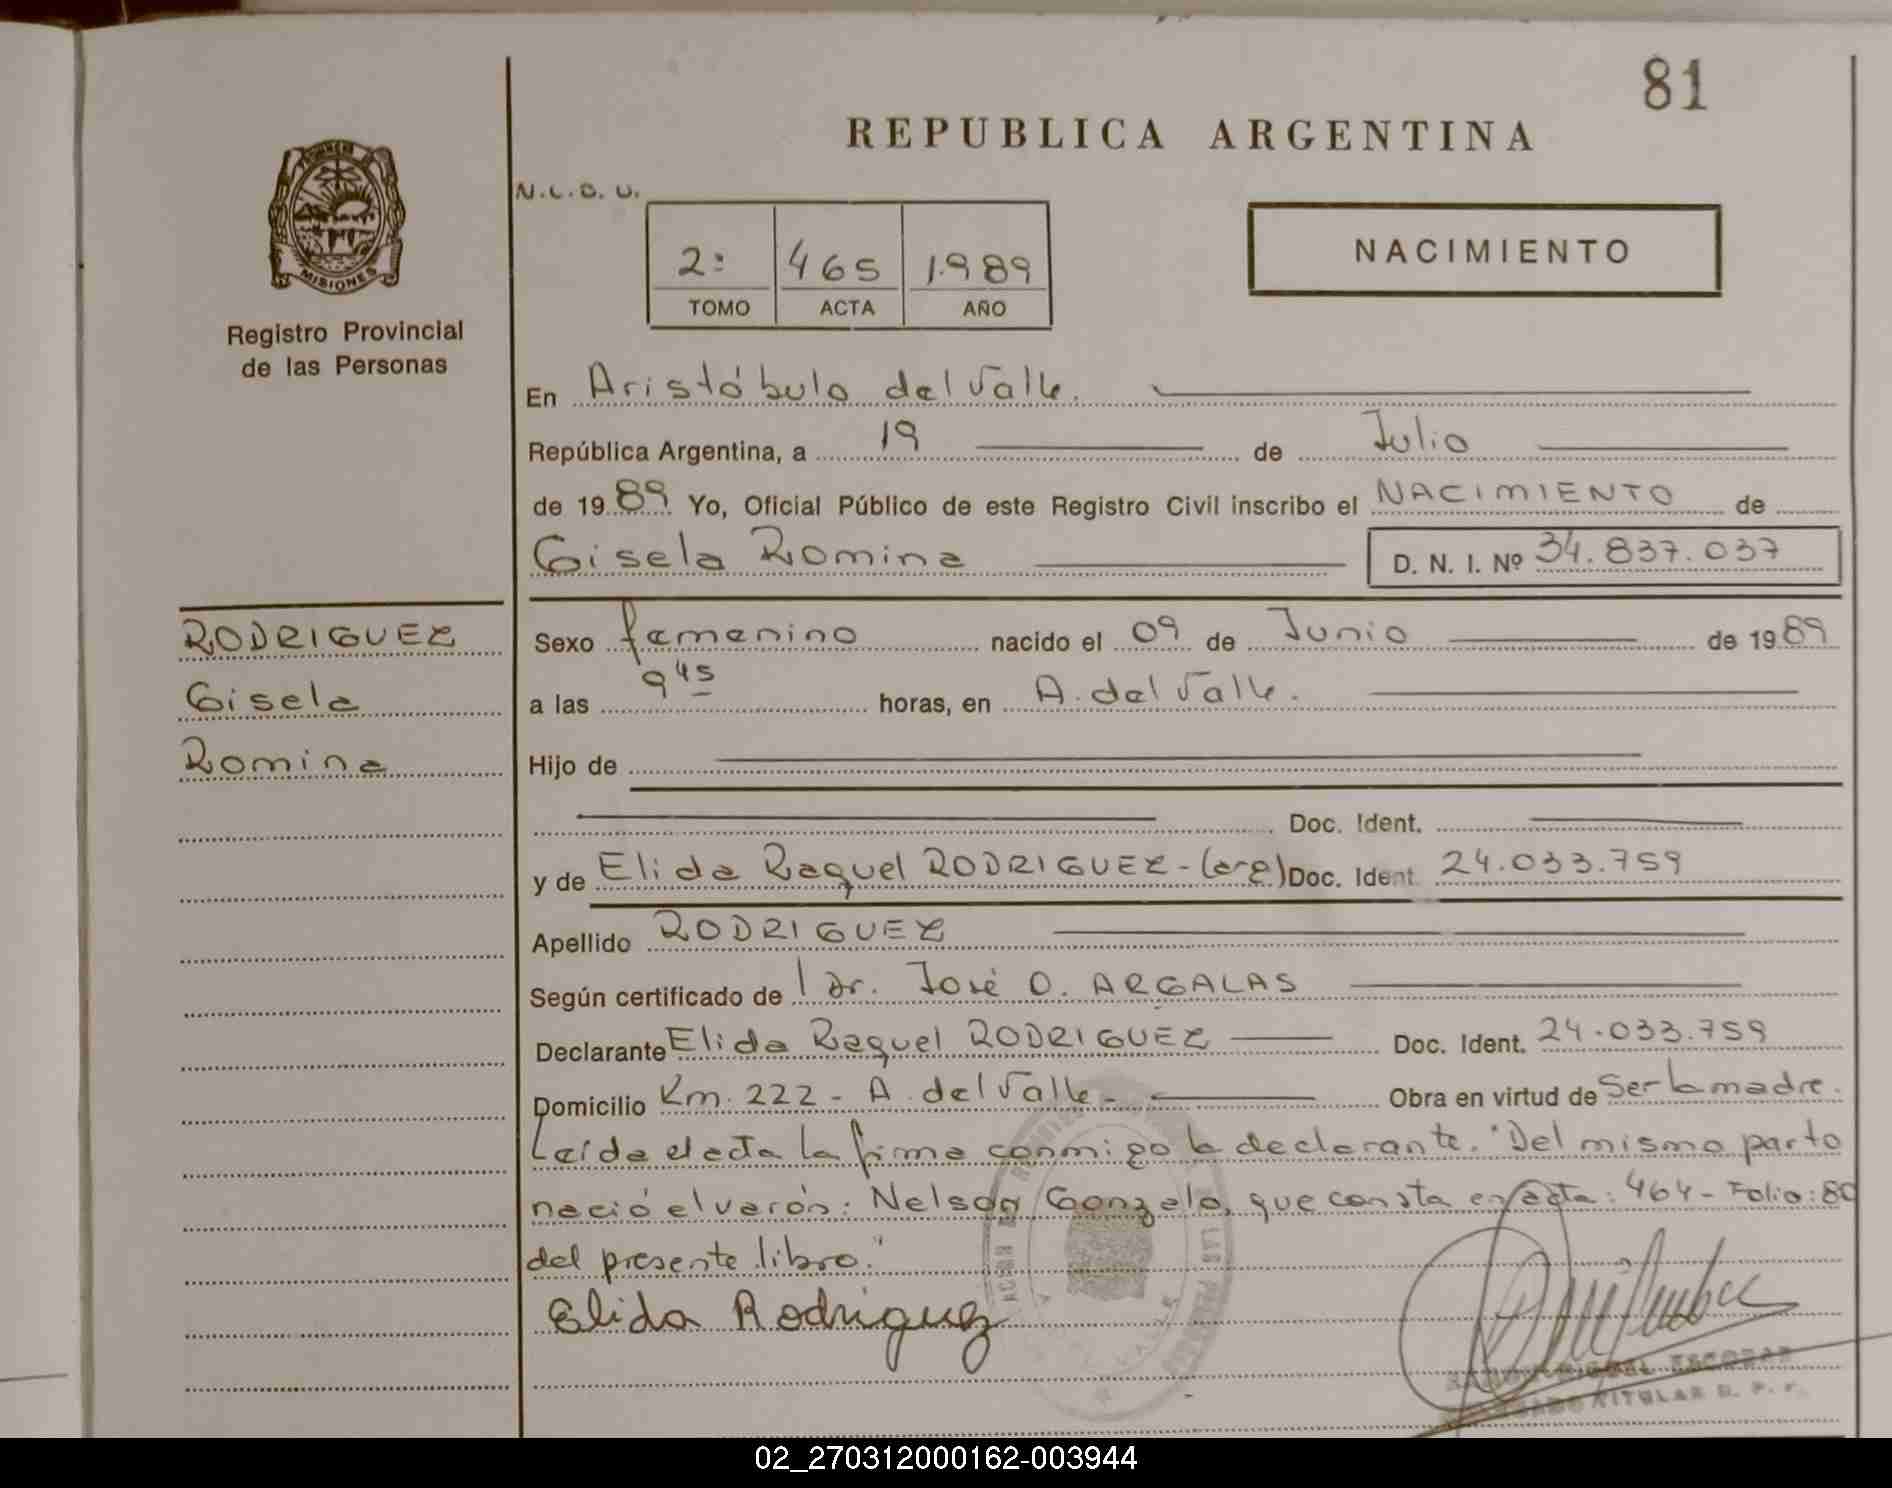 81
REPUBLICA ARGENTINA
PROVINCIA DE
MISIONES
Registro Provincial
de las Personas
N.L.O.U.
2º 465 1.989
TOMO ACTA AÑO
NACIMIENTO
En Aristóbulo del Valle.
República Argentina, a 19 de Julio
de 1989 Yo, Oficial Público de este Registro Civil inscribo el NACIMIENTO de
Gisela Romina D. N. I. Nº 34.837.037
RODRIGUEZ
Gisela
Romina
Sexo femenino nacido el 09 de Junio de 1989
a las 9 45 horas, en A. del Valle.
Hijo de
Doc. Ident.
y de Elida Raquel RODRIGUEZ - (arg) Doc. Ident. 24.033.759
Apellido RODRIGUEZ
Según certificado de l Dr. José O. ARGALAS
Declarante Elida Raquel RODRIGUEZ Doc. Ident. 24.033.759
Domicilio Km. 222 - A. del Valle - Obra en virtud de Ser la madre.
Leída el acta la firma conmigo la declarante. "Del mismo parto
nació el varón: Nelson Gonzalo, que consta en acta: 464 - Folio: 80
del presente libro."
Elida Rodriguez
MIGUEL ESCOBAR
TITULAR R. P. P.
02_270312000162-003944